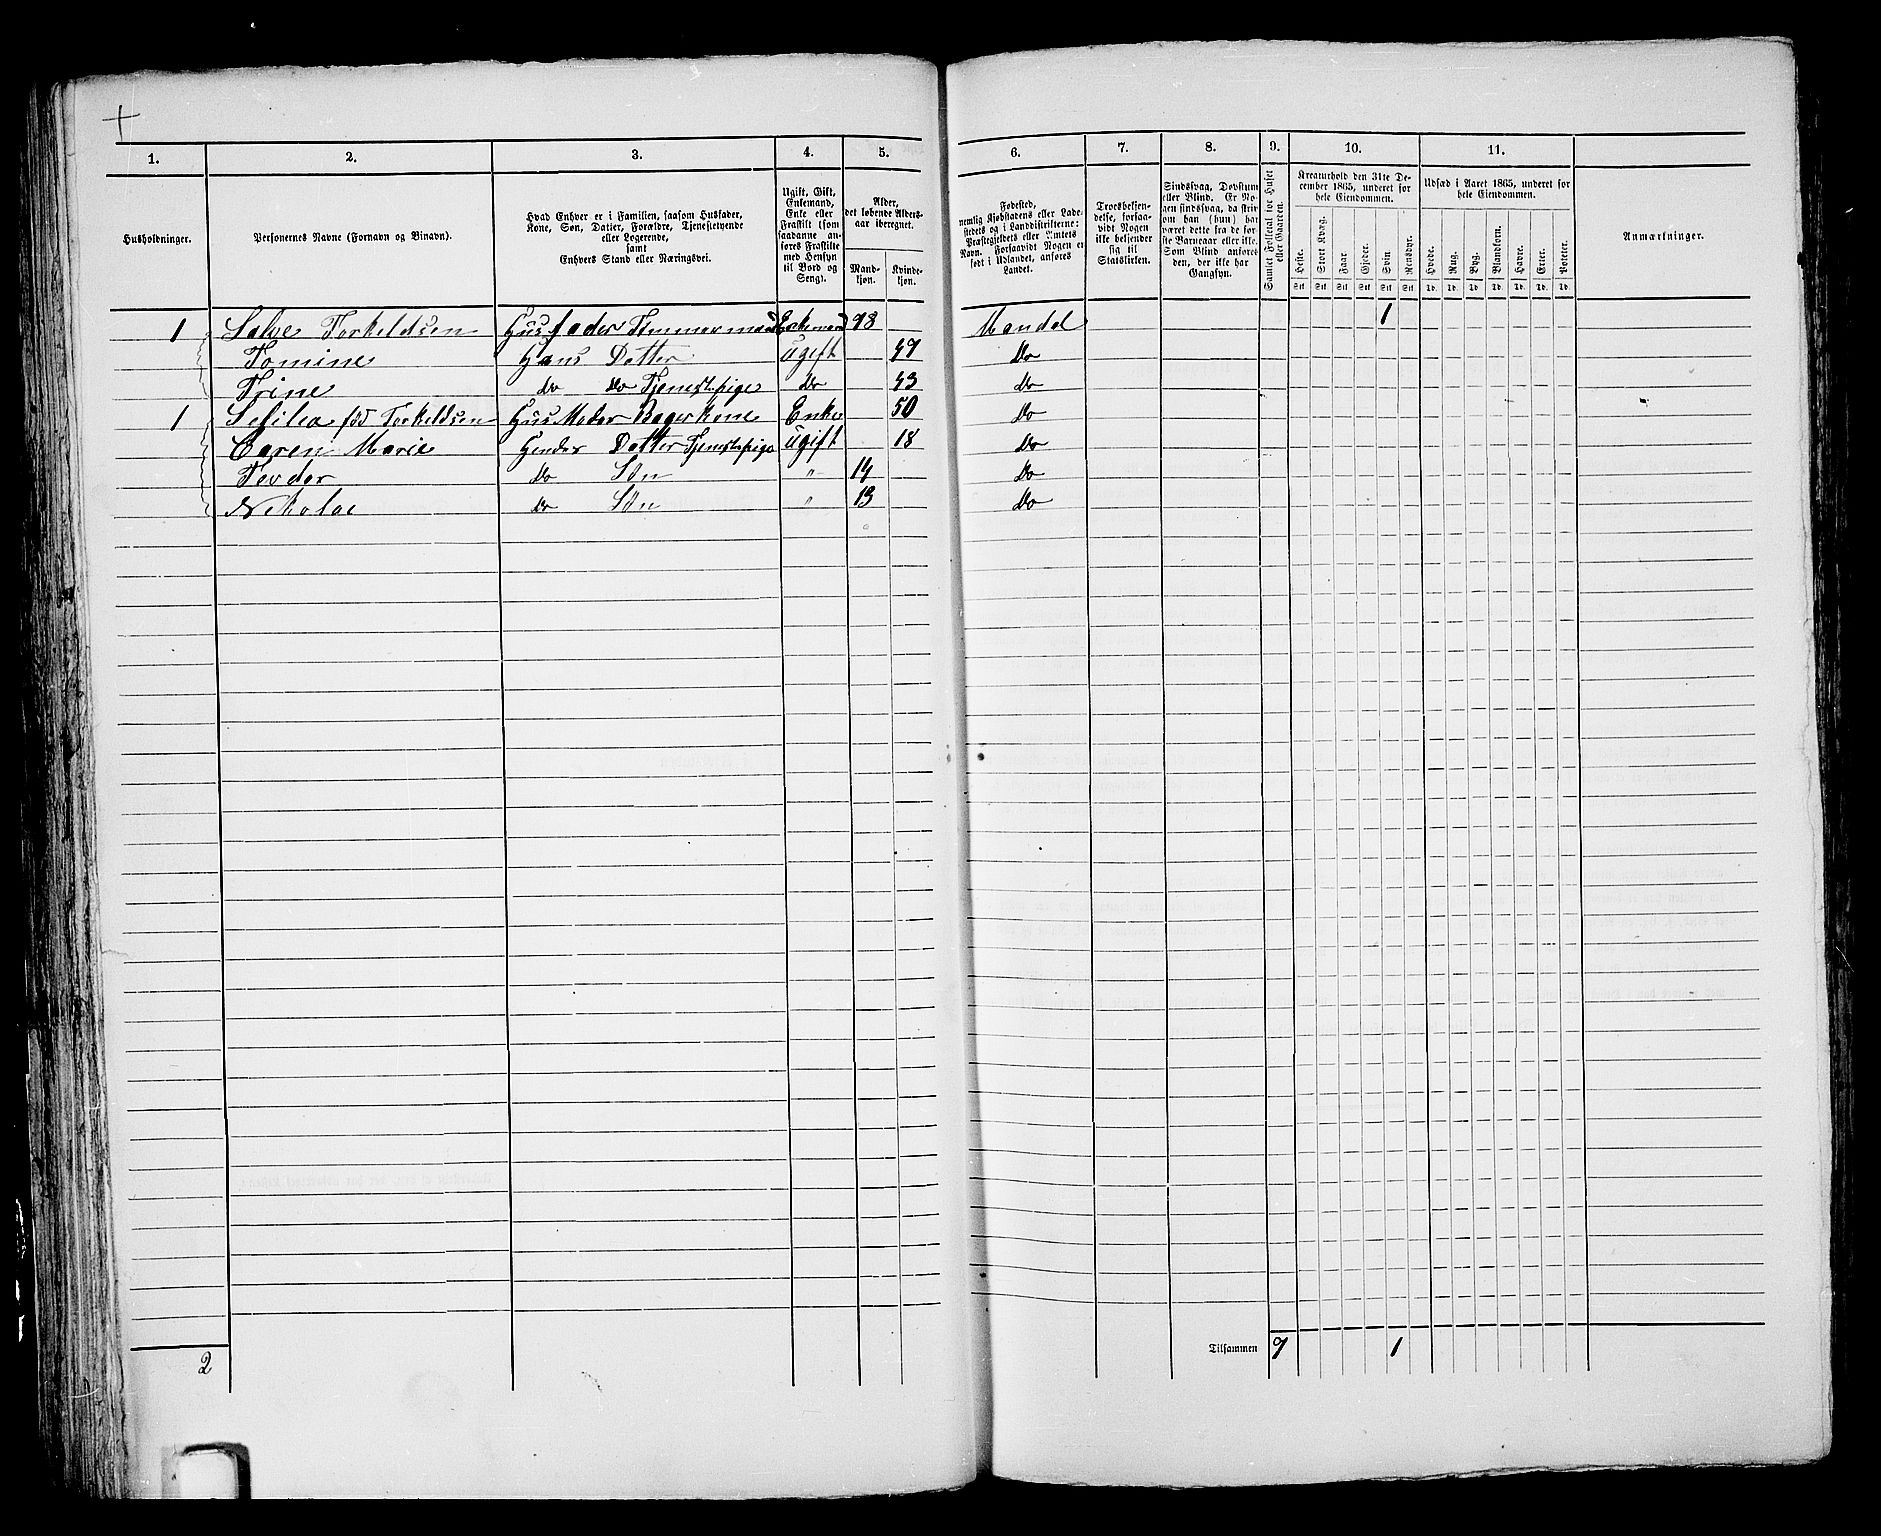 1. 2. 3. 4. 5. 6. 7. 8. 9. 10. 11.
Husholdninger.
Personernes Navne (Fornavn og Binavn).
Hvad Enhver er i Familien, saasom Husfader,
Kone, Søn, Datter, Forældre, Tjenestetyende
eller Logerende,
samt
Enhvers Stand eller Næringsvei.
Ugift, Gift,
Enkemand,
Enke eller
Fraskilt (som
saadanne an-
føres Fraskilte
med Hensyn
til Bord og
Seng).
Alder,
det løbende Alders-
aar iberegnet.
Mand-
kjøn.
Kvinde-
kjøn.
Fødested,
nemlig Kjøbstadens eller Lade-
stedets og i Landdistrikterne:
Præstegjeldets eller Amtets
Navn. Forsaavidt Nogen er
født i Udlandet, anføres
Landet.
Troesbekjen-
delse, forsaa-
vidt Nogen
ikke bekjender
sig til
Statskirken.
Sindssvag, Døvstum
eller Blind. Er No-
gen sindssvag, da skriv
om han (hun) har
været dette fra de før-
ste Barneaar eller ikke.
Som Blind anføres
den, der ikke har
Gangsyn.
Samlet Folketal for Huset
eller Gaarden.
Kreaturhold den 31te De-
cember 1865, underet for
hele Eiendommen.
Heste. Stort Kvæg. Faar. Gjeder. Svin Rensdyr.
Stk Stk Stk Stk Stk Stk
Udsæd i Aaret 1865, underet for
hele Eiendommen.
Hvede. Rug. Byg. Blandkorn. Havre. Erter. Poteter.
Td. Td. Td. Td. Td. Td. Td.
Anmærkninger.
1 Salve Torkildsen Husfader Tømmermand Enkemand 78 Mandal 1
Tomine Hans Datter ugift 47 Do
Trine Do Do Tjenestpige Do 43 Do
1 Sesilea fød Torkeldsen Hus Moder Bagerkone Enke 50 Do
Caren Marie Hendes Datter Tjenestepige ugift 18 Do
Tevder Do Søn " 14 Do
Nikolae Do Søn " 13 Do
2 Tilsammen 7 1